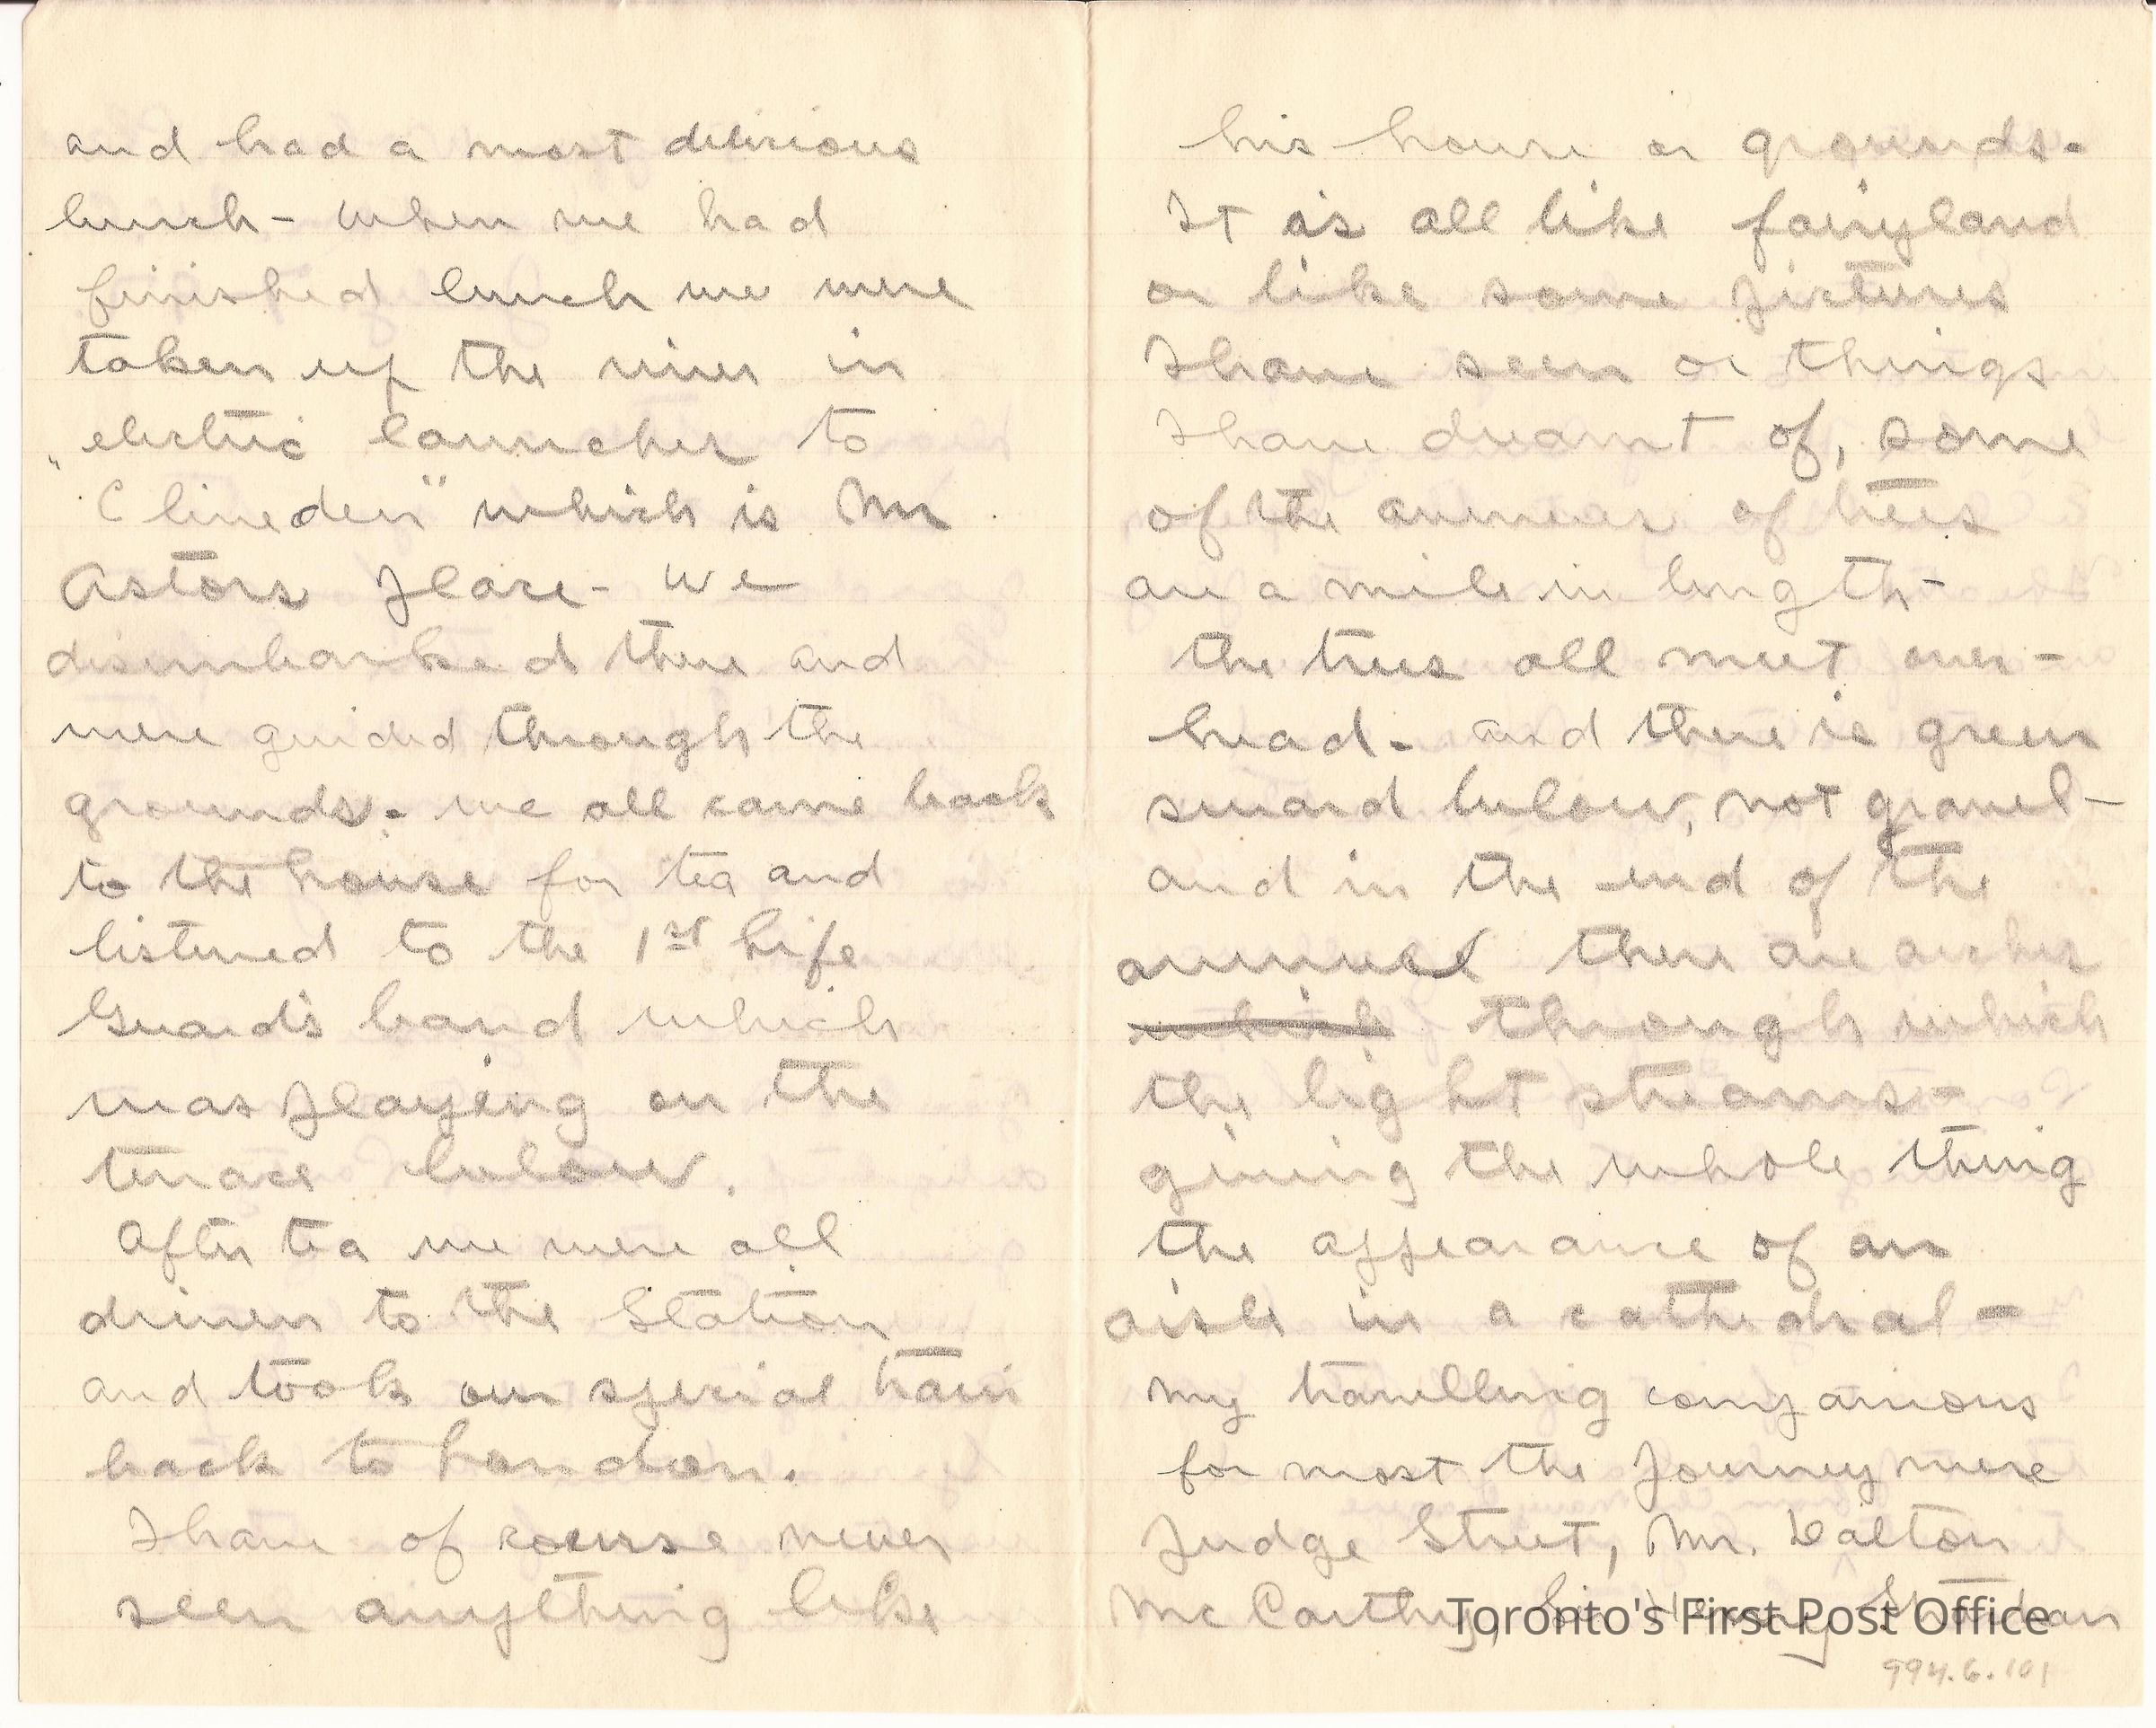 and had a most delicious
lunch - When we had
finished lunch we were
taken up the river in
electric launches to
"Cliveden" which is Mr
Astors place - We
disembarked there and
were guided through the
grounds. we all came back
to the house for tea and
listened to the 1st Life
Guards band which
was playing on the
terrace below.
After tea we were all
driven to the Station
and took our special train
back to London.
I have of course never
seen anything like
his house or grounds.
It is all like fairyland
or like some pictures
I have seen or things
I have dreamt of, some
of the avenues of trees
are a mile in length -
the trees all meet over-
head. and there is green
sward below, not gravel -
and in the end of the
avenues there are arches
which through which
the light streams -
giving the whole thing
the appearance of an
aisle in a cathedral -
My travelling companions
for most the Journey were
Judge Street, Mr. Dalton
McCarthy, Sir Henry
Toronto's First Post Office
994.6.101